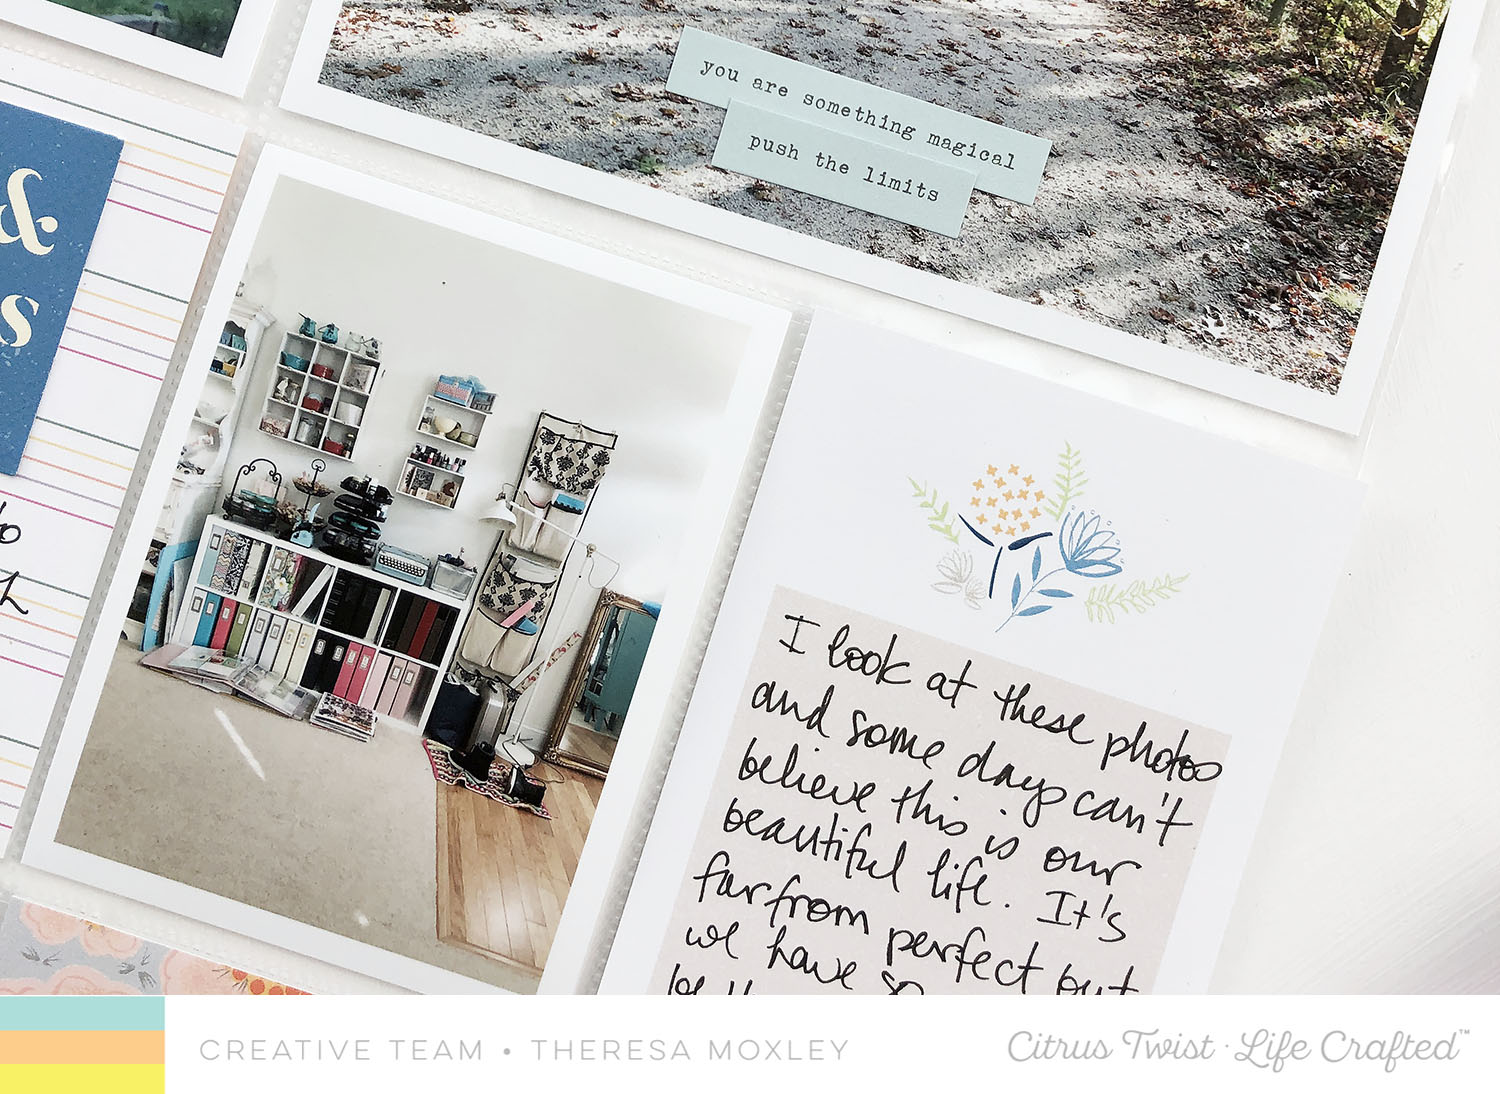 you are something magical
push the limits
&
s
I look at these photos
and some days can't
believe this is our
beautiful life. It's
far from perfect but
we have so
CREATIVE TEAM • THERESA MOXLEY
Citrus Twist · Life Crafted™